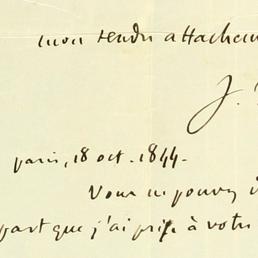 mon tendre attachem
J.
paris, 18 oct. 1844.
Vous ne pouvez i
part que j'ai prise à votre